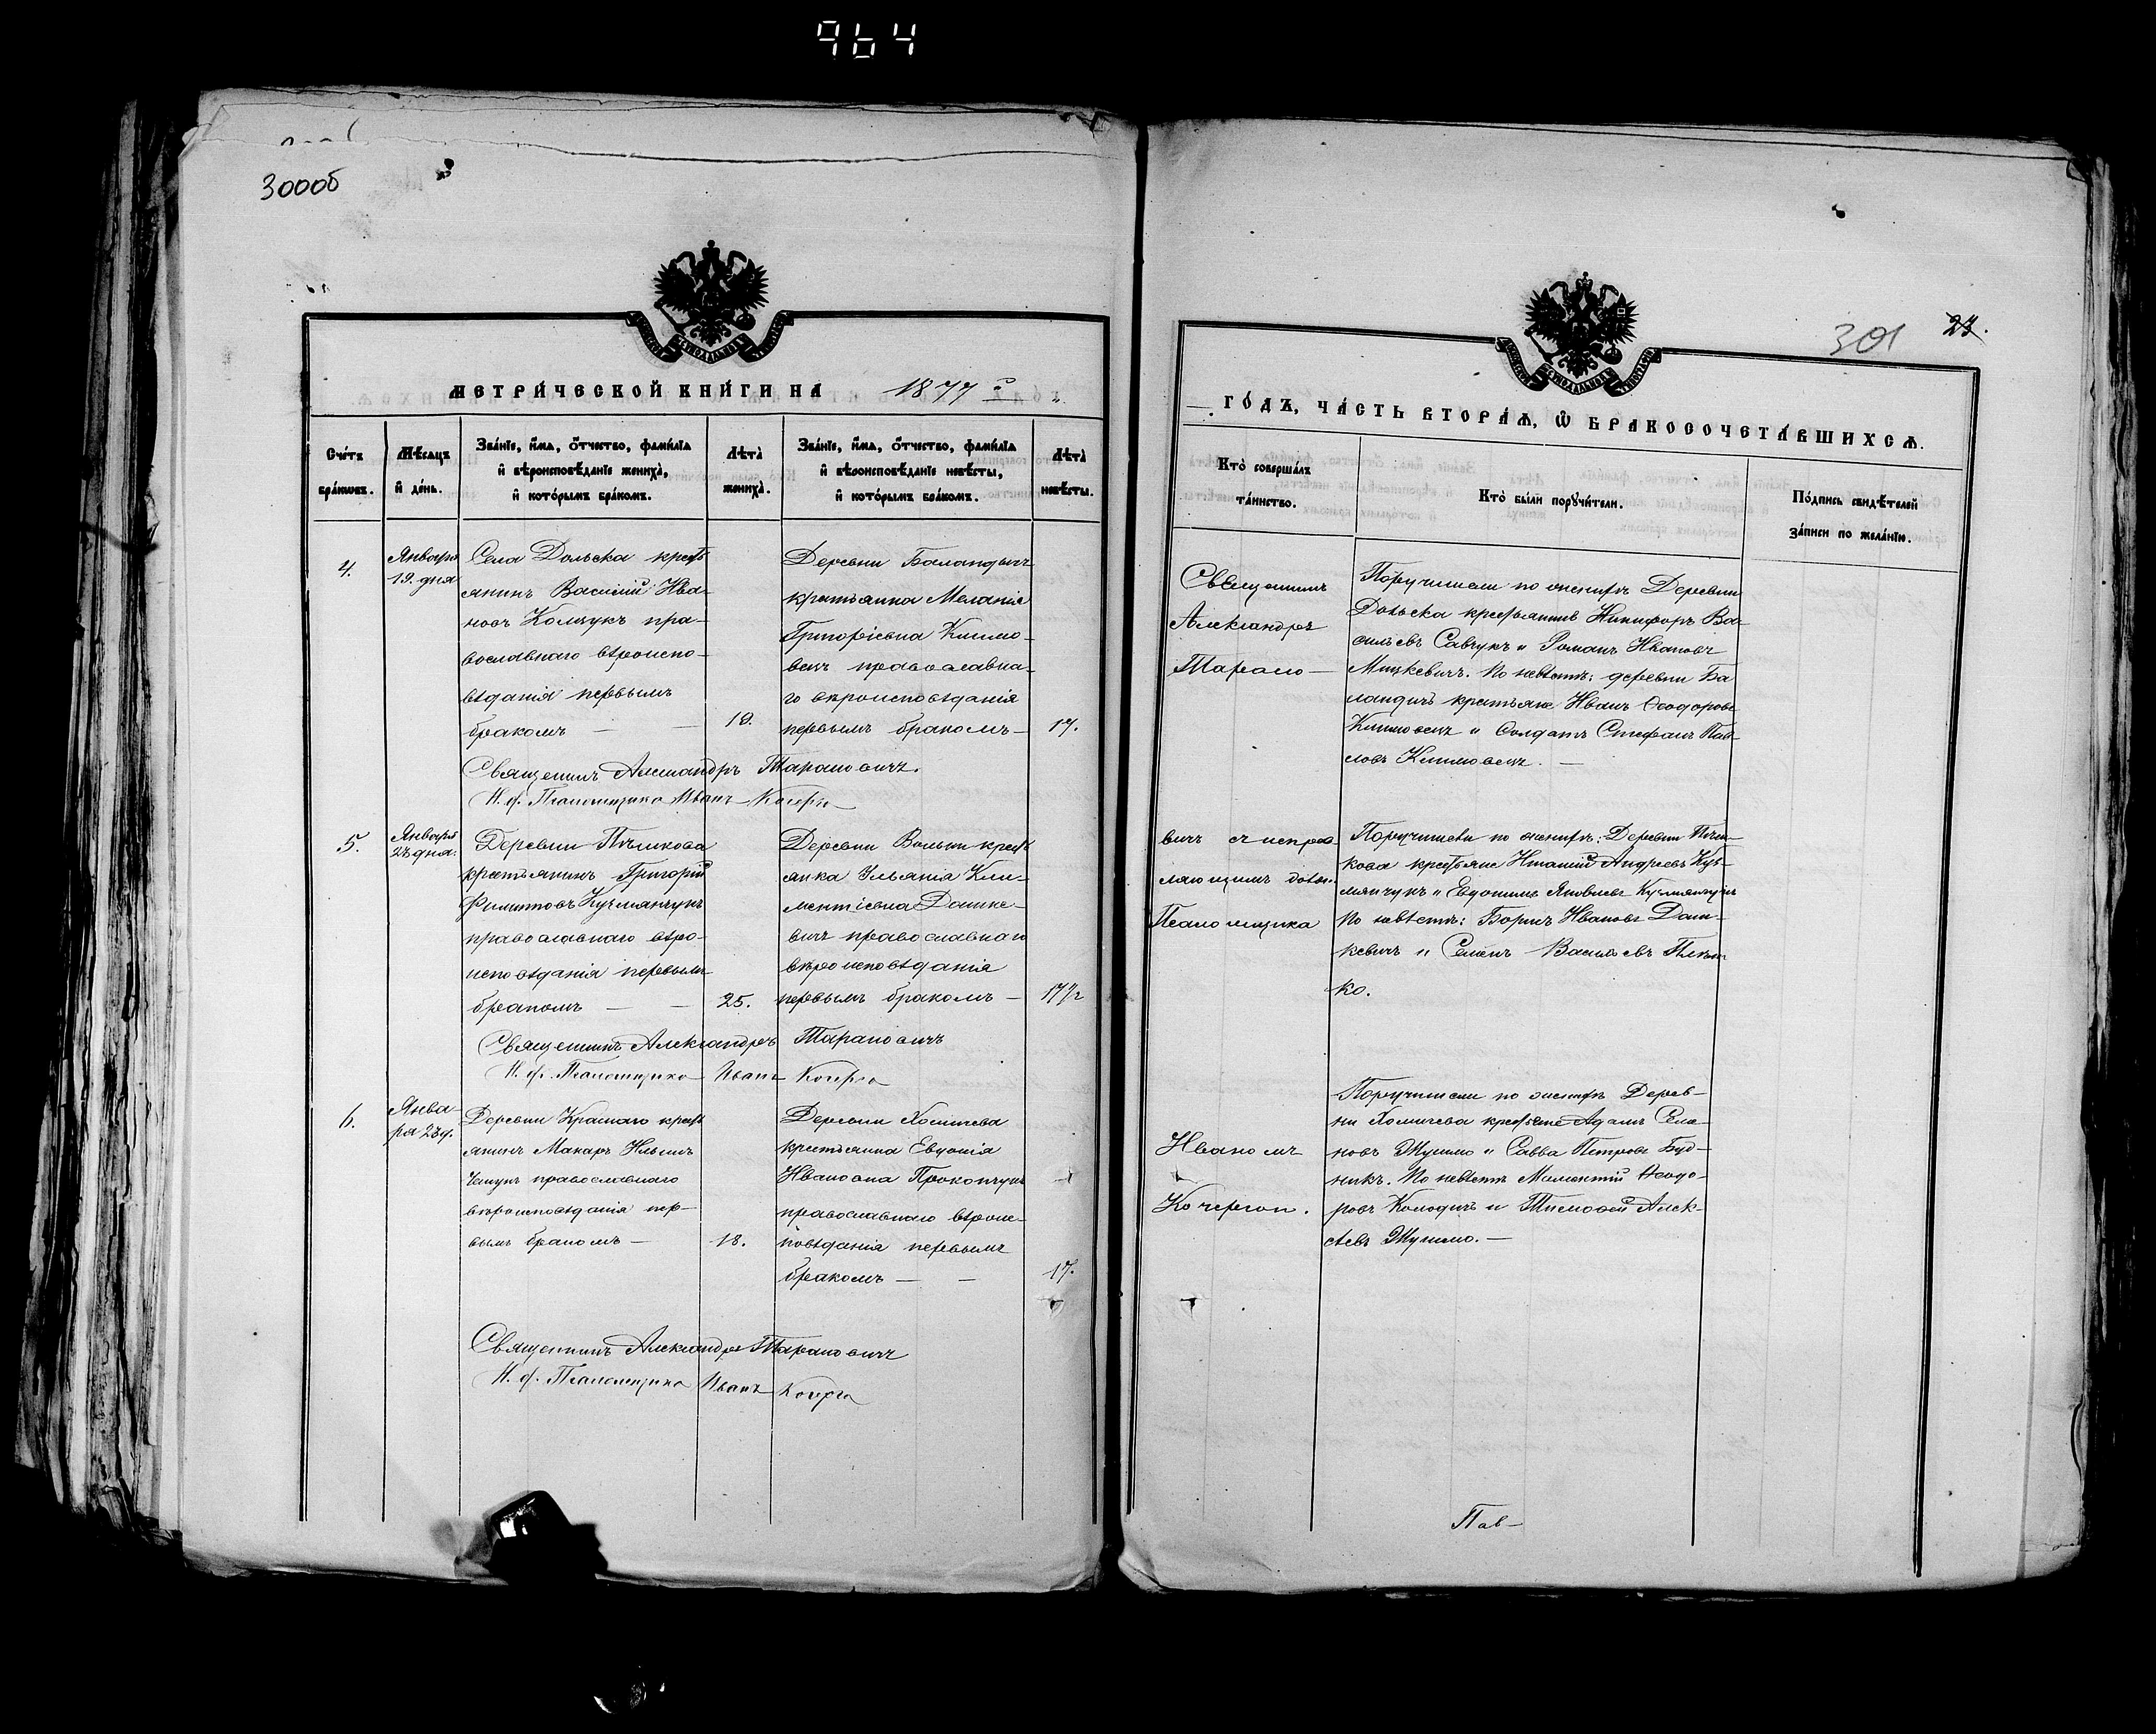 964
300об
МЕТРИ́ЧЕСКОЙ КНИ́ГИ НА 1877 г.
Сче́тъ бра́кωвъ.
Мѣ́сяцъ и҆ де́нь.
Зва́нїе, и҆́мѧ, ѻ҆́тчество, фамилїѧ
и҆ вѣроисповѣ́данїе жениха̀,
и҆ кото́рымъ бра́комъ.
Лѣта̀
жениха̀.
Зва́нїе, и҆́мѧ, ѻ҆́тчество, фамилїѧ
и҆ вѣроисповѣ́данїе невѣ́сты,
и҆ кото́рымъ бра́комъ.
Лѣта̀
невѣ́сты.
4.
Января
19. дня
Села Дольска крест
янинъ Василій Ива-
новъ Колчукъ пра-
вославнаго вѣроиспо-
вѣданія первымъ
бракомъ —
19.
Деревни Баландичъ
крестьянка Меланія
Григоріевна Климо-
вецъ православна-
го вѣроисповѣданія
первымъ бракомъ —
17.
Священникъ Александръ Тарановичъ.
И. д. Псаломщика Иванъ Кочерга
5.
Января
23 дня.
Деревни
крестьянинъ Григорій
Филиповъ Кузмянчукъ
православнаго вѣро-
исповѣданія первымъ
бракомъ — —
25.
Деревни Вольки крест
янка Ульянія Кли-
ментіевна Дашке-
вичъ православнаго
вѣроисповѣданія
первымъ бракомъ —
17 1/2
Священникъ Александръ Тарановичъ
И. д. Псаломщика Иванъ Кочерга
6.
Янва-
ря 23 д.
Деревни Краснаго крест
янинъ Макаръ Ильичъ
православнаго
вѣроисповѣданія пер-
вымъ бракомъ —
18.
Деревни Хомичева
крестьянка Евдокія
Ивановна Прокопчукъ
православнаго вѣроис-
повѣданія первымъ
бракомъ — —
17.
Священникъ Александръ Тарановичъ
И. д. Псаломщика Иванъ Кочерга
301 27.
ГО́ДЪ, ЧА́СТЬ ВТОРА́Ѧ, Ѽ БРАКОСОЧЕТА́ВШИХСѦ.
Кто̀ соверша́лъ
та́инство.
Кто̀ бы́ли порꙋчи́тели.
По́дпись свидѣ́телей
за́писи по жела́нїю.
Священникъ
Александръ
Тарано-
Поручители по женихѣ Деревни
Дольска крестьянинъ Никифоръ Ва-
сильевъ Савчукъ и Романъ Ивановъ
Мицкевичъ. По невѣстѣ: деревни Ба
ландичъ крестьяне Иванъ Ѳеодоровъ
Климовецъ и Солдатъ Стефанъ Пав-
ловъ Климовецъ. —
вичъ съ исправ-
ляющимъ должн.
Псаломщика
Поручители по женихѣ: Деревни
кова крестьяне Игнатій Андреевъ Куз-
мянчукъ и Евдокимъ Яковлевъ Кузмянчукъ
По невѣстѣ: Борисъ Ивановъ Даш-
кевичъ и Семенъ Васильевъ
ко.
Иваномъ
Кочергой.
Поручители по женихѣ Дерев-
ни Хомичева крестьяне Адамъ Семе-
новъ и Савва Петровъ Буд-
никъ. По невѣстѣ Ѳеодо-
ровъ Колодичъ и Тимофей Алек-
сѣевъ
Пав-